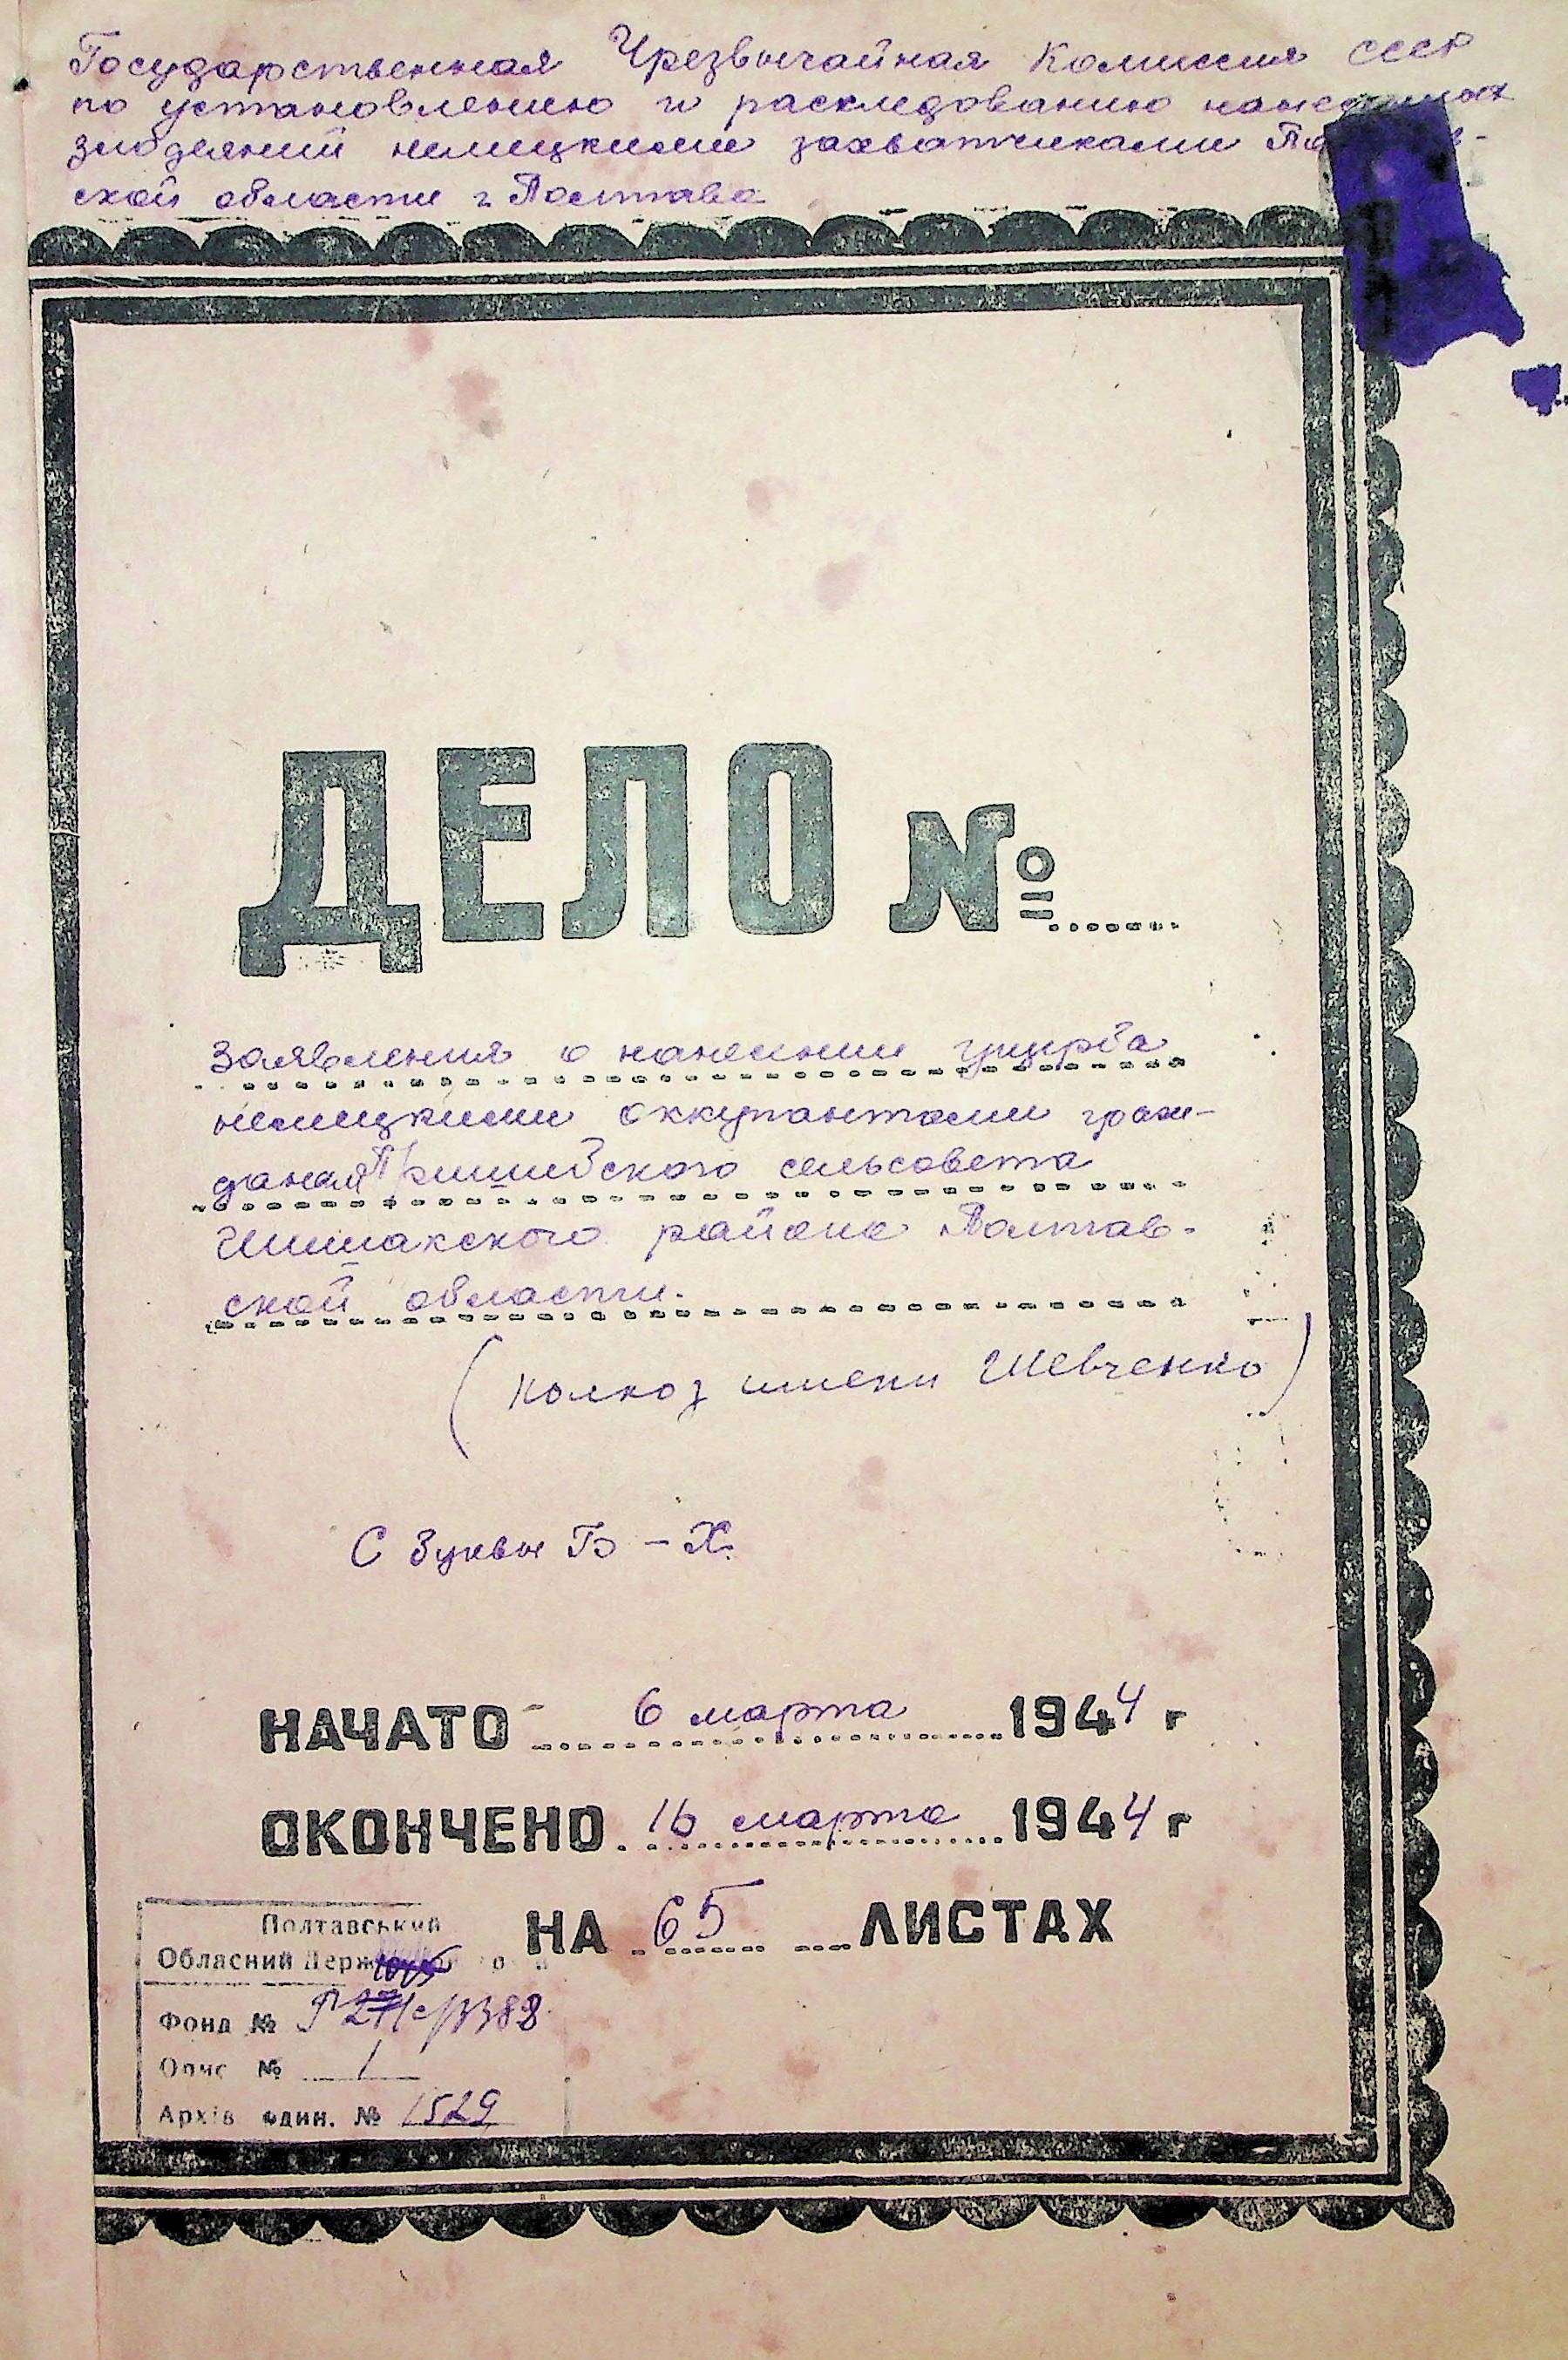 Государственная Чрезвычайная Комиссия СССР
по установлению и расследованию
злодеяний немецкими захватчиками
ской области г Полтава
ДЕЛО №
Заявления о нанесении ущерба
немецкими оккупантами граж-
данам сельсовета
Шишакского района Полтав-
ской области.
(колхоз имени Шевченко)
С буквы Б - Х.
НАЧАТО 6 марта 1944 г
ОКОНЧЕНО 16 марта 1944 г
НА 65 ЛИСТАХ
Полтавський
Обласний
Фонд №
Опис № 1
Архів один. № 1529